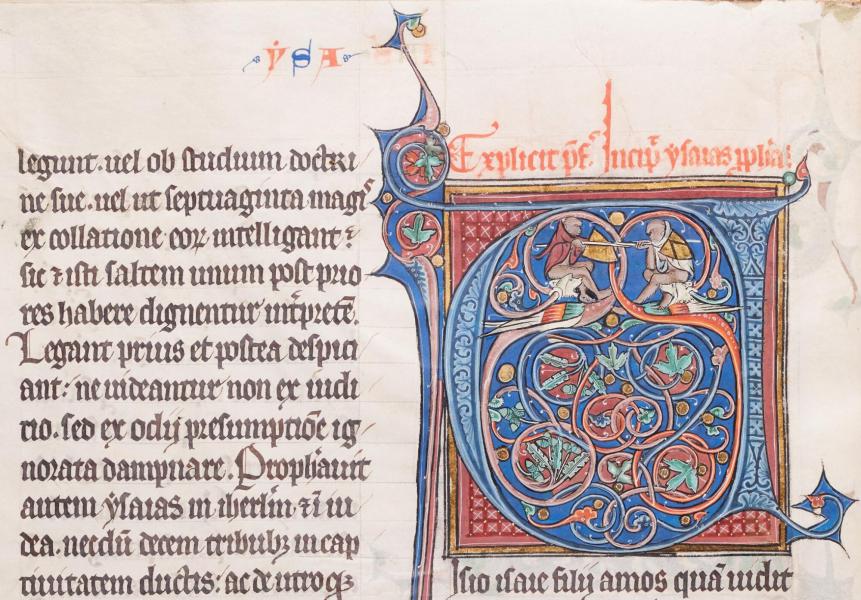 ẏSA
legunt. uel ob studium doctri
ne sue. uel ut septuaginta magis
ex collatione eoꝝ intelligant:
sic ⁊ isti saltem unum post prio
res habere dignentur int̓pretē.
Legant prius et postea despici
ant: ne uideantur non ex iudi
tio. sed ex odij presumptiōe ig
norata dampnare. Prophauit
autem ẏsaias in iherl̄m ⁊ ī iu
dea. necdū decem tribubꝫ in cap
tiuitatem ductis: ac de utroqꝫ
Explicit pf̄. Incip̄ ysaias ꝓph̄a.
V
Isio isaie filij amos quā uidit